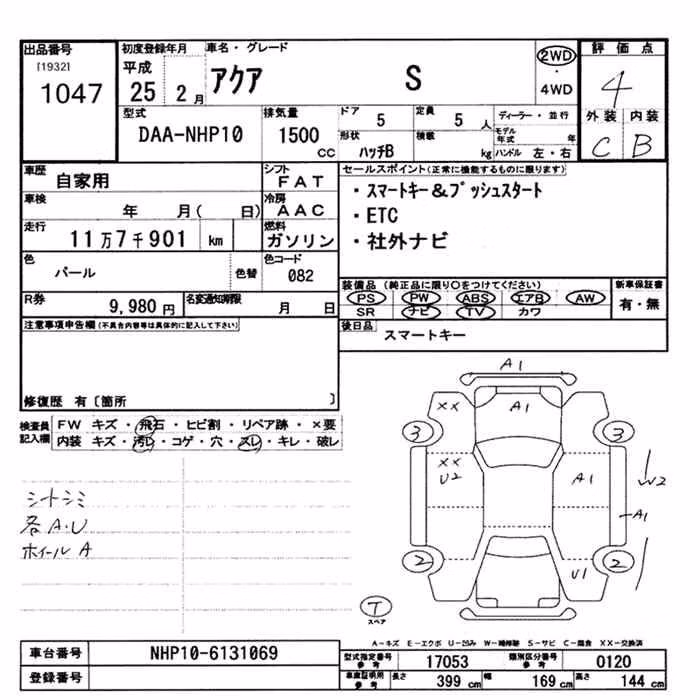 出品番号 初度登録年月 車名・グレード 2WD 評価点
[1932] 平成 アクア S 4
1047 25 2月 4WD 外装 内装
型式 排気量 ドア 5 定員 5人 ディーラー・並行 C B
DAA-NHP10 1500cc 形状 ハッチB 積載 kg モデル年式 年 ハンドル 左・右
車歴 自家用 シフト FAT セールスポイント(正常に機能するものに限ります)
車検 年 月( 日) 冷房 AAC ・スマートキー&プッシュスタート
走行 11万7千901 km 燃料 ガソリン ・ETC
・社外ナビ
色 パール 色替 色コード 082
装備品 (純正品に限り○をつけてください) 新車保証書
R券 9,980円 名変通知期限 月 日 PS PW ABS エアB AW 有・無
SR ナビ TV カワ
注意事項申告欄(不具合内容等は具体的に記入して下さい) 後日品 スマートキー
修復歴 有〔箇所 〕
検査員記入欄 FW キズ・飛石・ヒビ割・リペア跡・×要
内装 キズ・汚レ・コゲ・穴・スレ・キレ・破レ
シートシミ
各A・U
ホイールA
A1
XX A1
3 3
XX
U2 A1 W2
A1
2 U1 2
T
スペア
A-キズ E-エクボ U-凹み W-補修跡 S-サビ C-腐食 XX-交換済
車台番号 NHP10-6131069 型式指定番号 参考 17053 類別区分番号 参考 0120
登録番号 車庫証明用 参考 長さ 399cm 幅 169cm 高さ 144cm